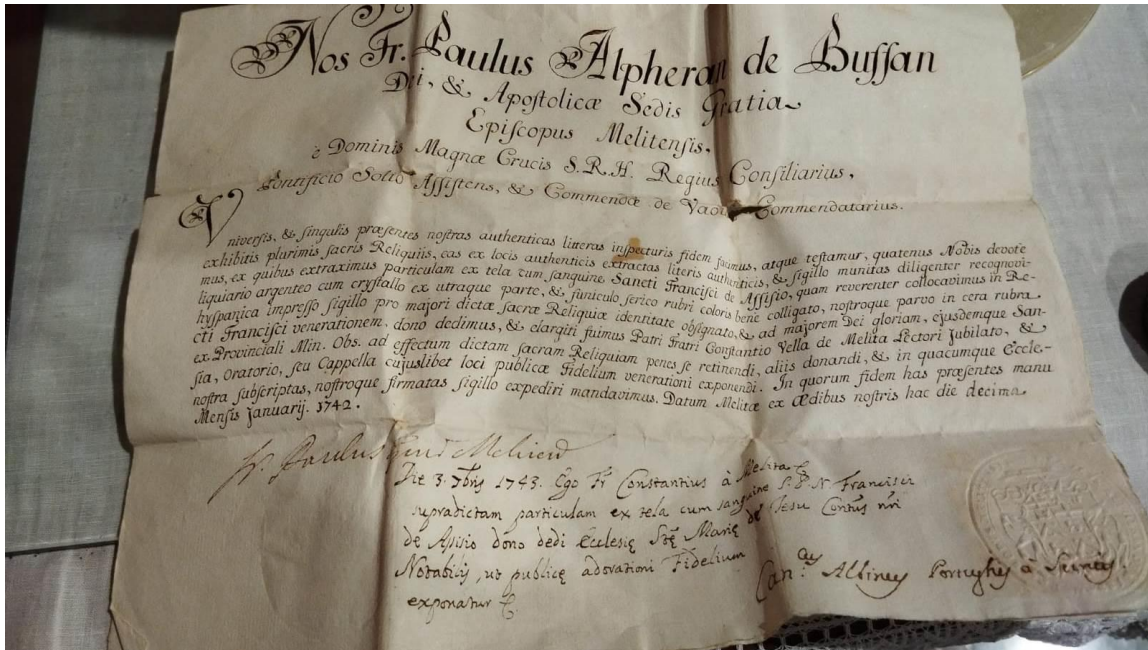 Nos Fr. Paulus Alpheran de Bussan
Dei, & Apostolicæ Sedis Gratia
Episcopus Melitensis.
è Dominis Magnæ Crucis S.R.H. Regius Consiliarius,
Pontificio Solio Assistens, & Commendæ de Commendatarius.
Universis, & singulis præsentes nostras authenticas litteras inspecturis fidem facimus, atque testamur, quatenus Nobis devote
exhibitis plurimis sacris Reliquiis, eas ex locis authenticis extractas literis authenticis, & sigillo munitas diligenter recognovi-
mus, ex quibus extraximus particulam ex tela cum sanguine Sancti Francisci de Assisio, quam reverenter collocavimus in Re-
liquiario argenteo cum crystallo ex utraque parte, & funiculo serico rubri coloris bene colligato, nostroque parvo in cera rubra
hyspanica impresso sigillo pro majori dictæ sacræ Reliquiæ identitate obsignato, & ad majorem Dei gloriam, ejusdemque San-
cti Francisci venerationem, dono dedimus, & elargiti fuimus Patri Fratri Constantio Vella de Melita Lectori Jubilato, &
ex Provinciali Min. Obs. ad effectum dictam sacram Reliquiam penes se retinendi, aliis donandi, & in quacumque Eccle-
sia, Oratorio, seu Cappella cujuslibet loci publicæ Fidelium venerationi exponendi. In quorum fidem has præsentes manu
nostra subscriptas, nostroque firmatas sigillo expediri mandavimus. Datum Melitæ ex Ædibus nostris hac die decima
Mensis Januarij. 1742.
fr. Paulus
Die 3. 7bris 1743. Ego Fr Constantius à Melita
supradictam particulam ex tela cum sanguine S. P. N Francisci
de Assisio dono dedi Ecclesię Stę Marię de Jesu Contus nri
Notabilis, ut publicę adorationi Fidelium
exponatur
Can.cus Albinus